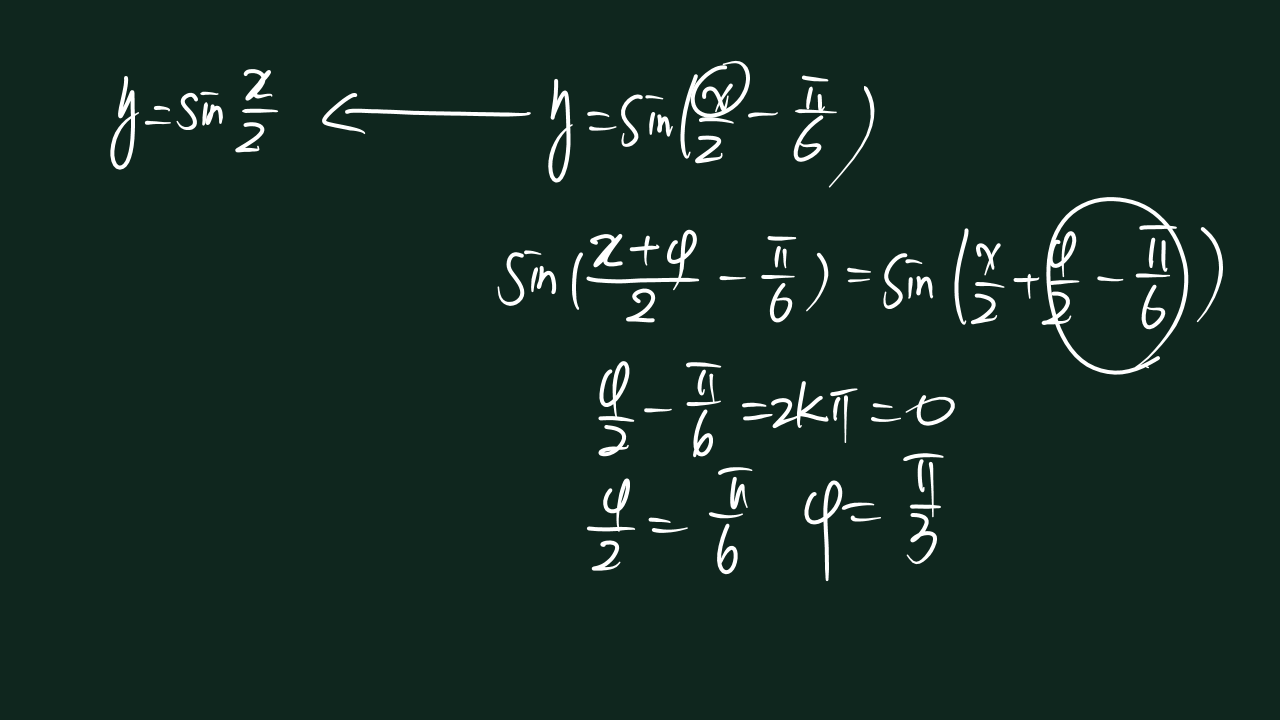 y = sin x/2 ← y = sin(x/2 − π/6)
sin((x+φ)/2 − π/6) = sin(x/2 + φ/2 − π/6)
φ/2 − π/6 = 2kπ = 0
φ/2 = π/6 φ = π/3